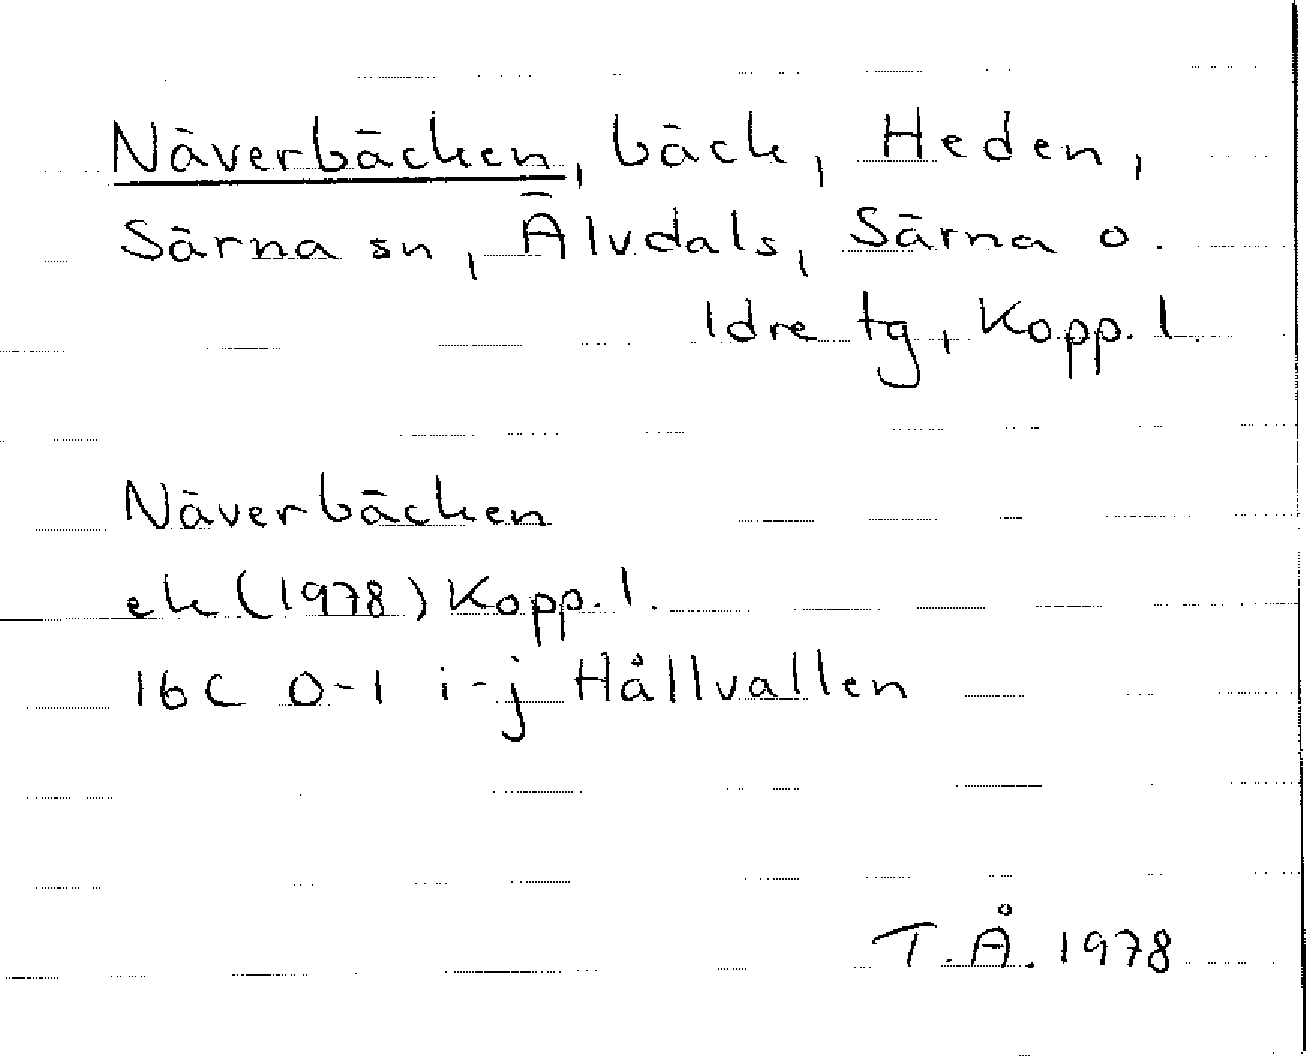 Näverbäcken, bäck, Heden,
Särna sn, Älvdals, Särna o.
Idre tg, Kopp. l.
Näverbäcken
ek (1978) Kopp. l.
16C 0-1 i-j Hållvallen
T.Å. 1978